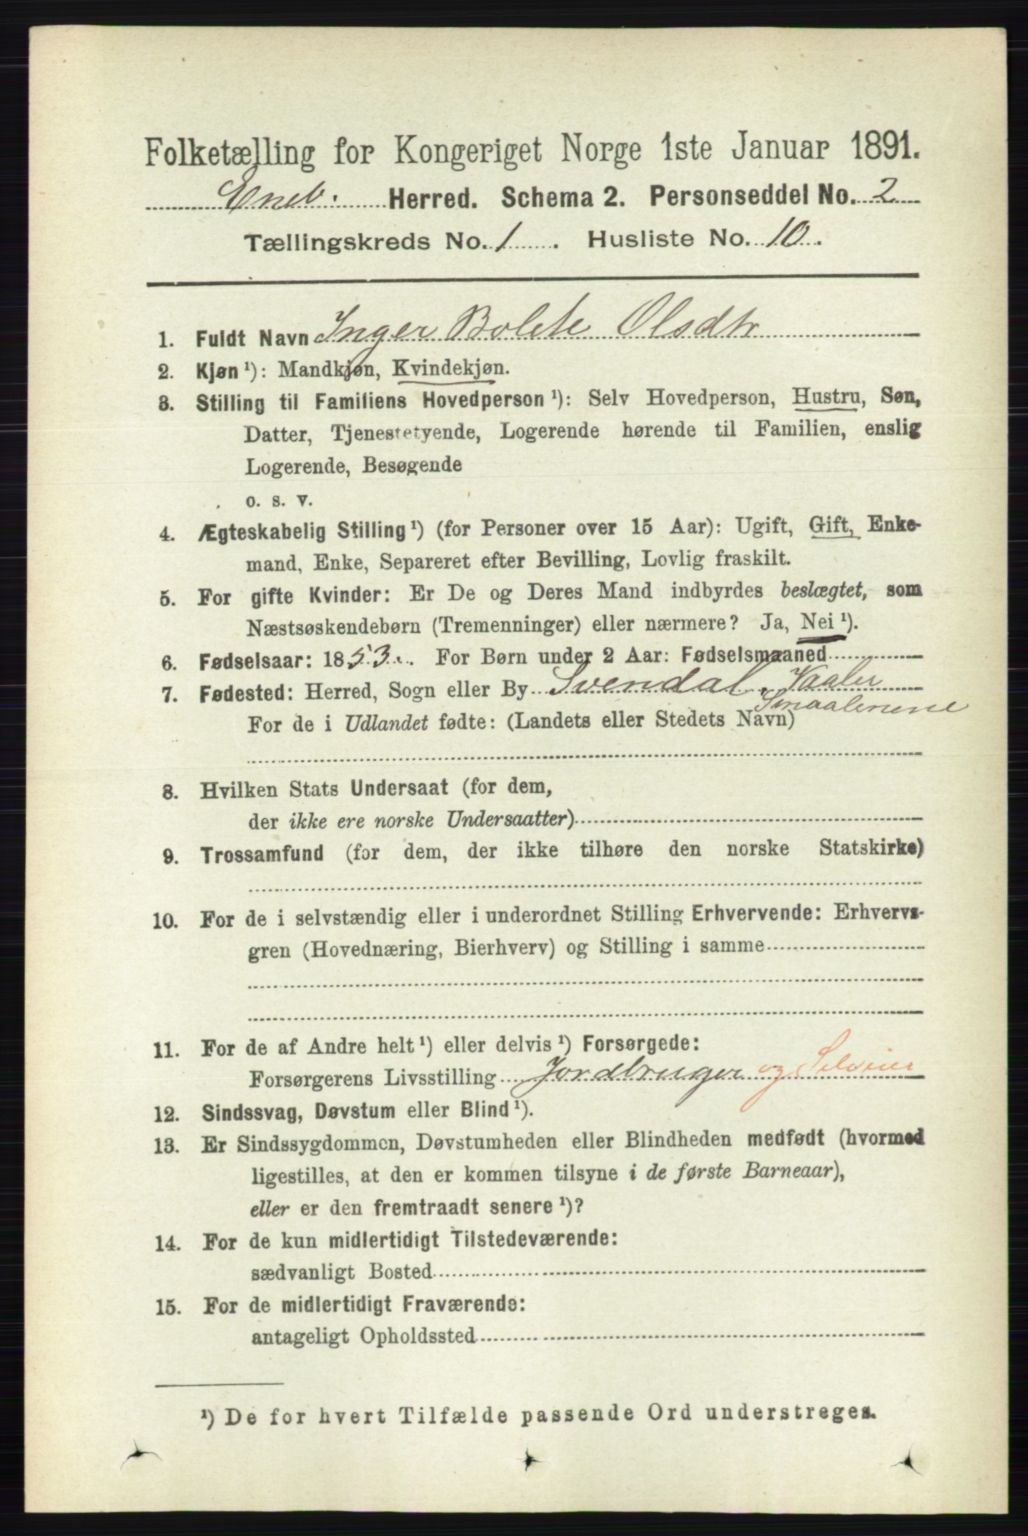 Folketælling for Kongeriget Norge 1ste Januar 1891.
Eneb. Herred. Schema 2. Personseddel No. 2
Tællingskreds No. 1. Husliste No. 10.
1. Fuldt Navn Inger Bolete Olsdtr
2. Kjøn ¹): Mandkjøn, Kvindekjøn.
3. Stilling til Familiens Hovedperson ¹): Selv Hovedperson, Hustru, Søn,
Datter, Tjenestetyende, Logerende hørende til Familien, enslig
Logerende, Besøgende
o. s. v.
4. Ægteskabelig Stilling ¹) (for Personer over 15 Aar): Ugift, Gift, Enke-
mand, Enke, Separeret efter Bevilling, Lovlig fraskilt.
5. For gifte Kvinder: Er De og Deres Mand indbyrdes beslægtet, som
Næstsøskendebørn (Tremenninger) eller nærmere? Ja, Nei ¹).
6. Fødselsaar: 1853. For Børn under 2 Aar: Fødselsmaaned
7. Fødested: Herred, Sogn eller By Svendal, Vaaler
Smaalenene
For de i Udlandet fødte: (Landets eller Stedets Navn)
8. Hvilken Stats Undersaat (for dem,
der ikke ere norske Undersaatter)
9. Trossamfund (for dem, der ikke tilhøre den norske Statskirke)
10. For de i selvstændig eller i underordnet Stilling Erhvervende: Erhvervs-
gren (Hovednæring, Bierhverv) og Stilling i samme
11. For de af Andre helt ¹) eller delvis ¹) Forsørgede:
Forsørgerens Livsstilling Jordbruger og Selveier
12. Sindssvag, Døvstum eller Blind ¹).
13. Er Sindssygdommen, Døvstumheden eller Blindheden medfødt (hvormed
ligestilles, at den er kommen tilsyne i de første Barneaar),
eller er den fremtraadt senere ¹)?
14. For de kun midlertidigt Tilstedeværende:
sædvanligt Bosted
15. For de midlertidigt Fraværende:
antageligt Opholdssted
¹) De for hvert Tilfælde passende Ord understreges.